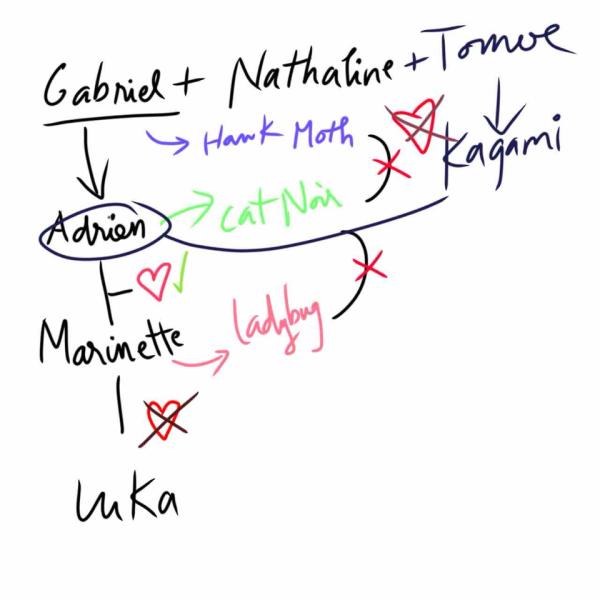 Gabriel + Nathaline + Tomoe
Hawk Moth
Kagami
Adrien
cat Noir
Marinette
ladybug
luka